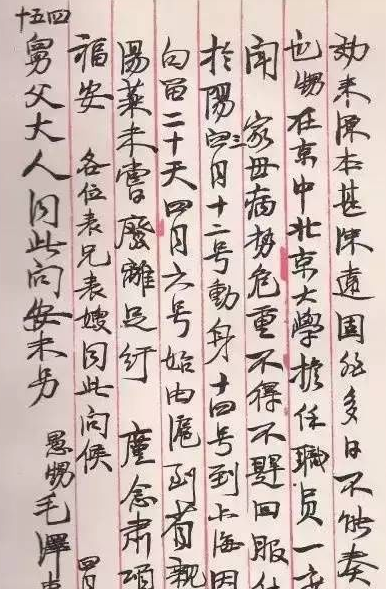 効来源本甚深遠固非多日不能奏
也甥在京中北京大學擔任職員一席
聞 家母病勢危重不得不趕回服侍
於陽三月十二号動身十四号到上海因
勾留二十天四月六号始由滬到省親
湯藥未嘗廢離足紓 廑念肅頌
福安 各位表兄表嫂同此問候 四月
四五十舅父大人同此問安未另 愚甥毛澤東